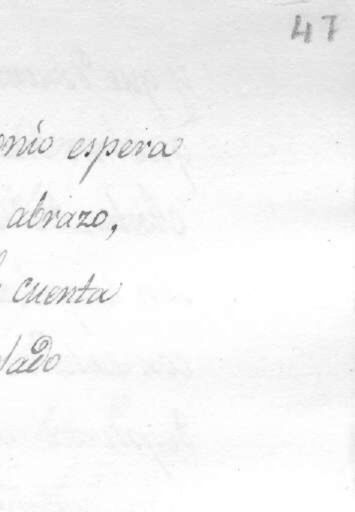 47
onio espera
abrazo,
cuenta
lado